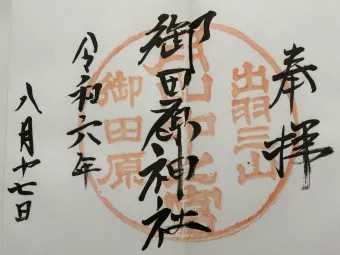 奉拝
出羽三山
御田原神社
御田原
令和六年
八月十七日